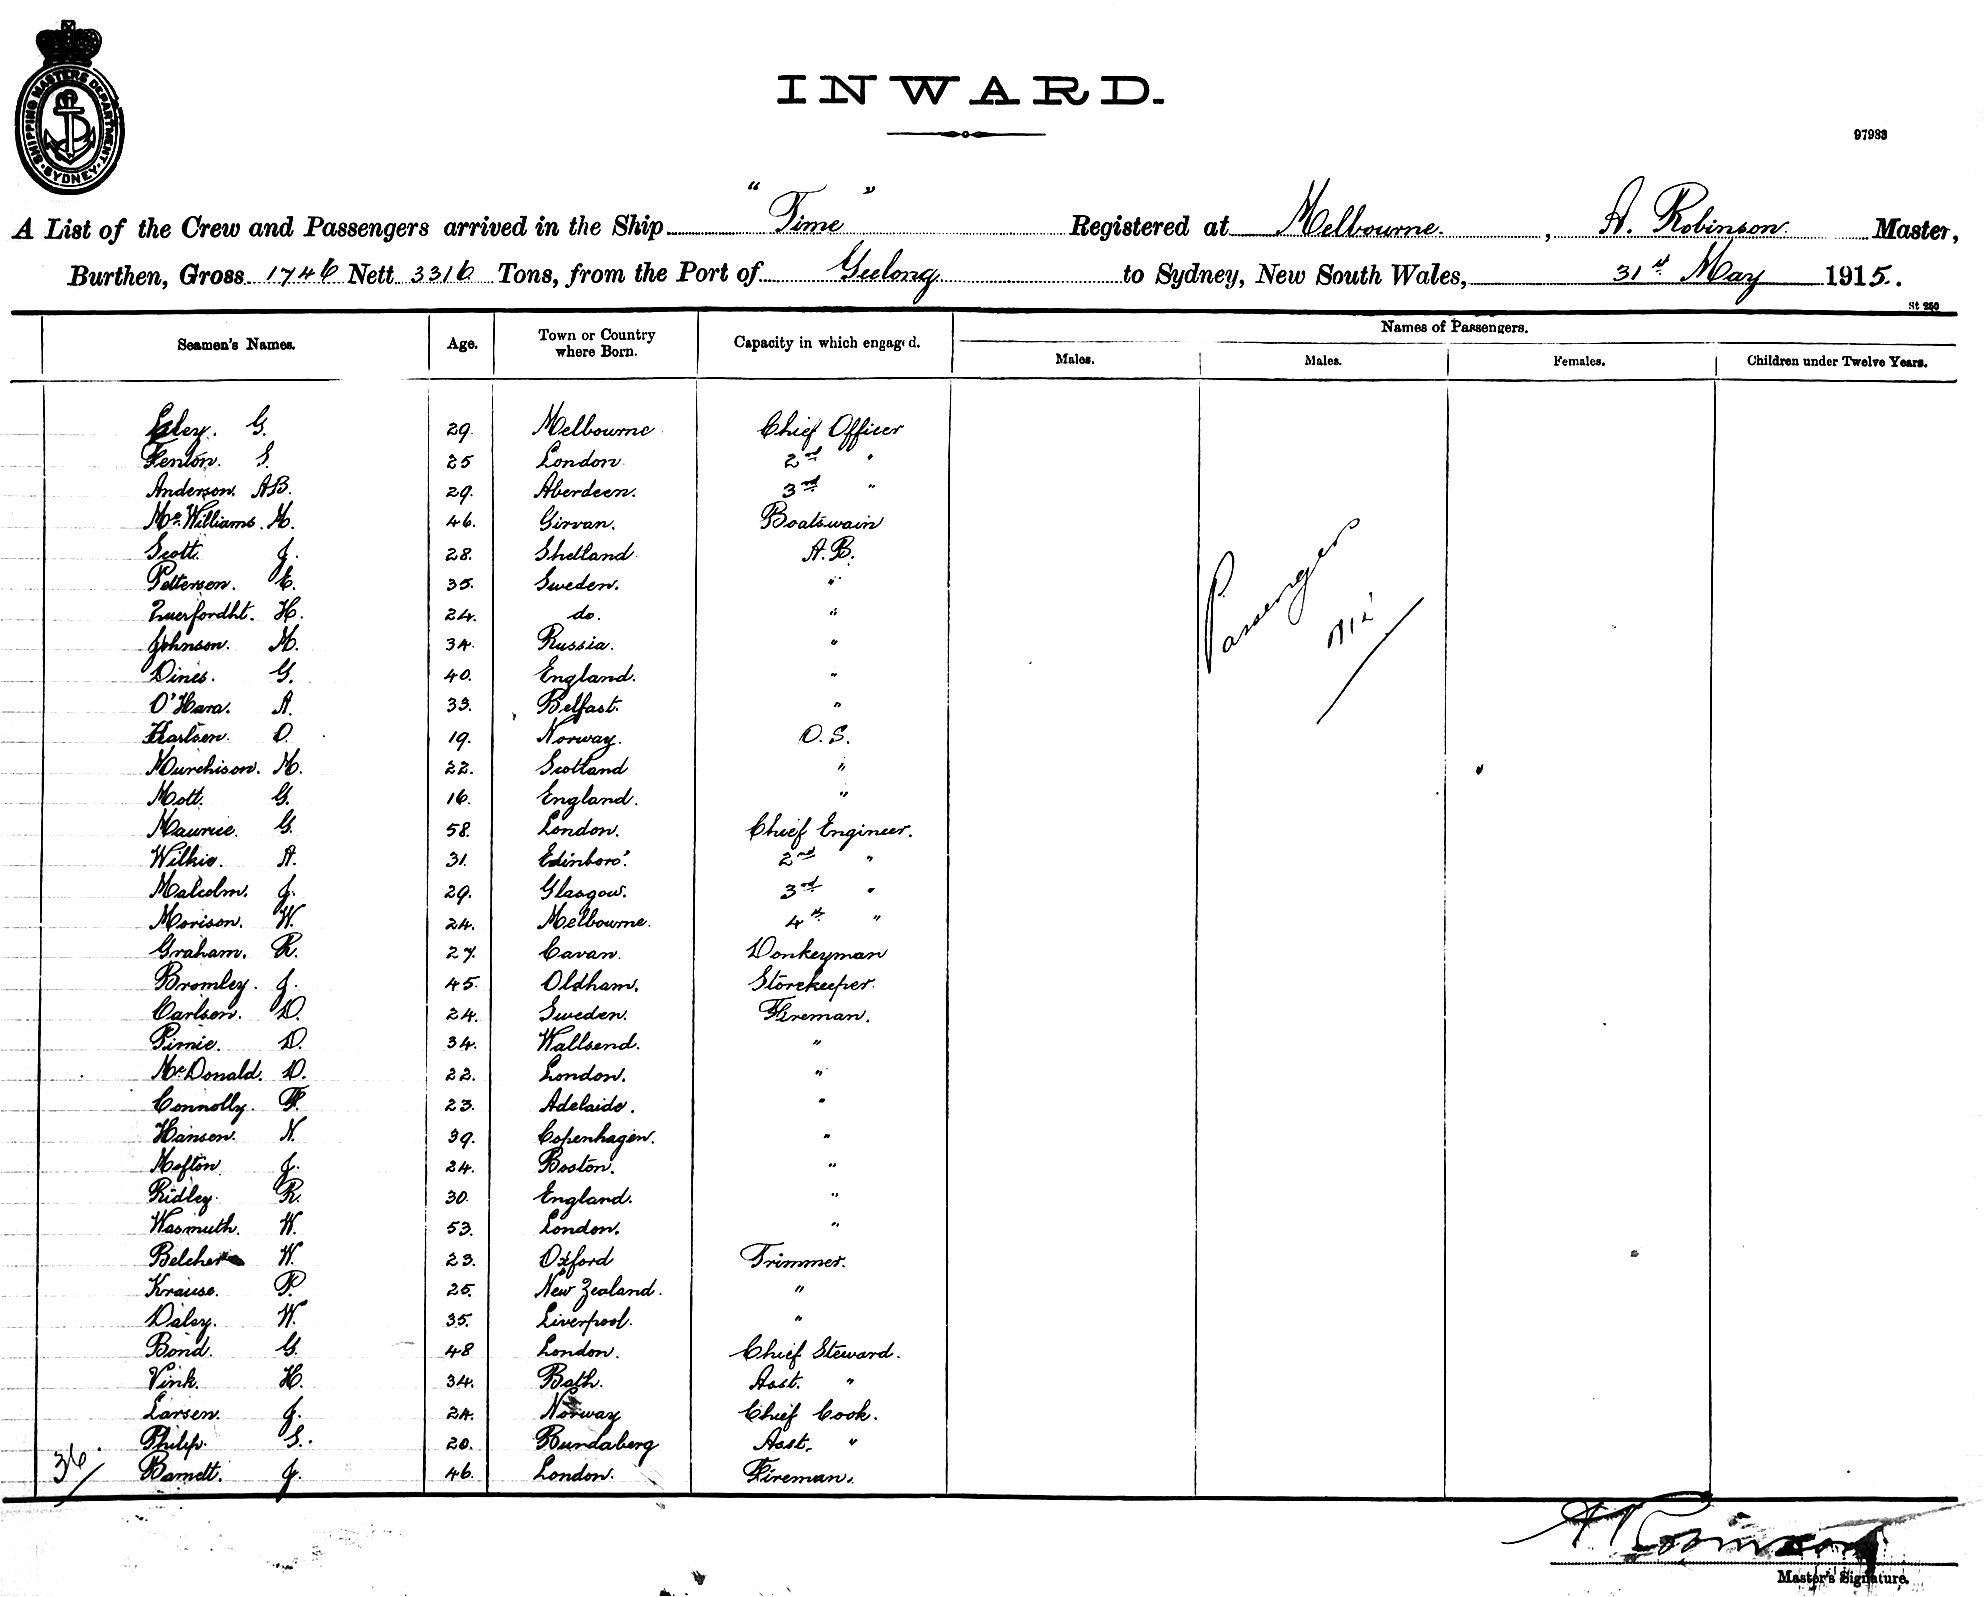 SHIPPING MASTERS DEPARTMENT. SYDNEY
INWARD.
97983
A List of the Crew and Passengers arrived in the Ship "Time" Registered at Melbourne. , A. Robinson Master,
Burthen, Gross 1746 Nett 3316 Tons, from the Port of Geelong to Sydney, New South Wales, 31st May 1915.
St 250
Seamen's Names. Age. Town or Country where Born. Capacity in which engaged. Names of Passengers.
Males. Males. Females. Children under Twelve Years.
G. 29. Melbourne Chief Officer
Fenton. S. 25 London 2nd "
Anderson. A.B. 29. Aberdeen. 3rd "
McWilliams. H. 46. Girvan. Boatswain
Scott. J. 28. Shetland A.B.
Petterson. E. 35. Sweden. "
H. 24. do. "
Johnson. M. 34. Russia. "
Dines. G. 40. England. "
O'Hara. A. 33. Belfast. "
Karlsen. O. 19. Norway. O.S.
Murchison. M. 22. Scotland "
Mott. G. 16. England. "
Maurice. G. 58. London. Chief Engineer.
Wilkie. A. 31. Edinboro'. 2nd "
Malcolm. J. 29. Glasgow. 3rd "
Morison. W. 24. Melbourne. 4th "
Graham. R. 27. Cavan. Donkeyman
Bromley. J. 45. Oldham. Storekeeper.
Carlson. D. 24. Sweden. Fireman.
Pirnie. D. 34. Wallsend. "
McDonald. D. 22. London. "
Connolly. F. 23. Adelaide. "
Hansen. N. 39. Copenhagen. "
J. 24. Boston. "
Ridley. R. 30. England. "
Wasmuth. W. 53. London. "
Belcher W. 23. Oxford Trimmer.
Krause. P. 25. New Zealand. "
Daley. W. 35. Liverpool. "
Bond. G. 48 London. Chief Steward.
Vink. H. 34. Bath. Asst. "
Larsen. J. 24. Norway Chief Cook.
Philip. S. 20. Bundaberg Asst. "
36/ Barnett. J. 46. London. Fireman.
Passengers
Nil
A Robinson
Master's Signature.